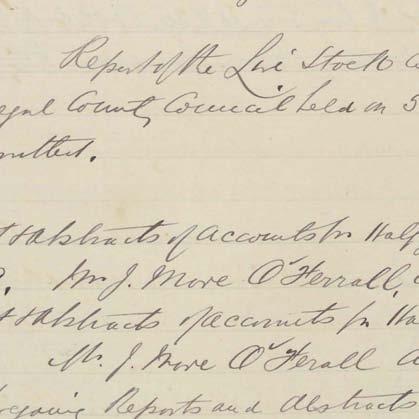 Report of the Live Stock Co
egal County Council held on 3
mittee.
t & Abstracts of Accounts for Half
Mr J. More O'Ferrall,
t & Abstracts of accounts for Ha
Mr. J. More O'Ferall A
egoing Reports and Abstracts